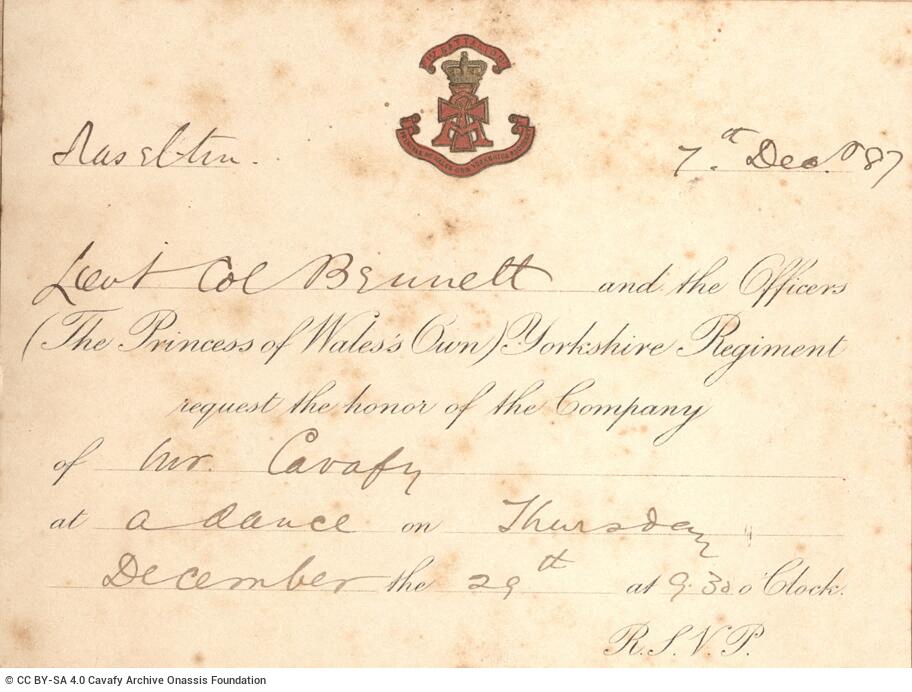 1ST BATTALION
PRINCESS OF WALES'S OWN YORKSHIRE REGIMENT
7th Decr. 87
Lieut Col Bennett and the Officers
(The Princess of Wales's Own) Yorkshire Regiment
request the honor of the Company
of Mr. Cavafy
at a dance on Thursday
December the 29th at 9.30 o'Clock.
R.S.V.P.
© CC BY-SA 4.0 Cavafy Archive Onassis Foundation